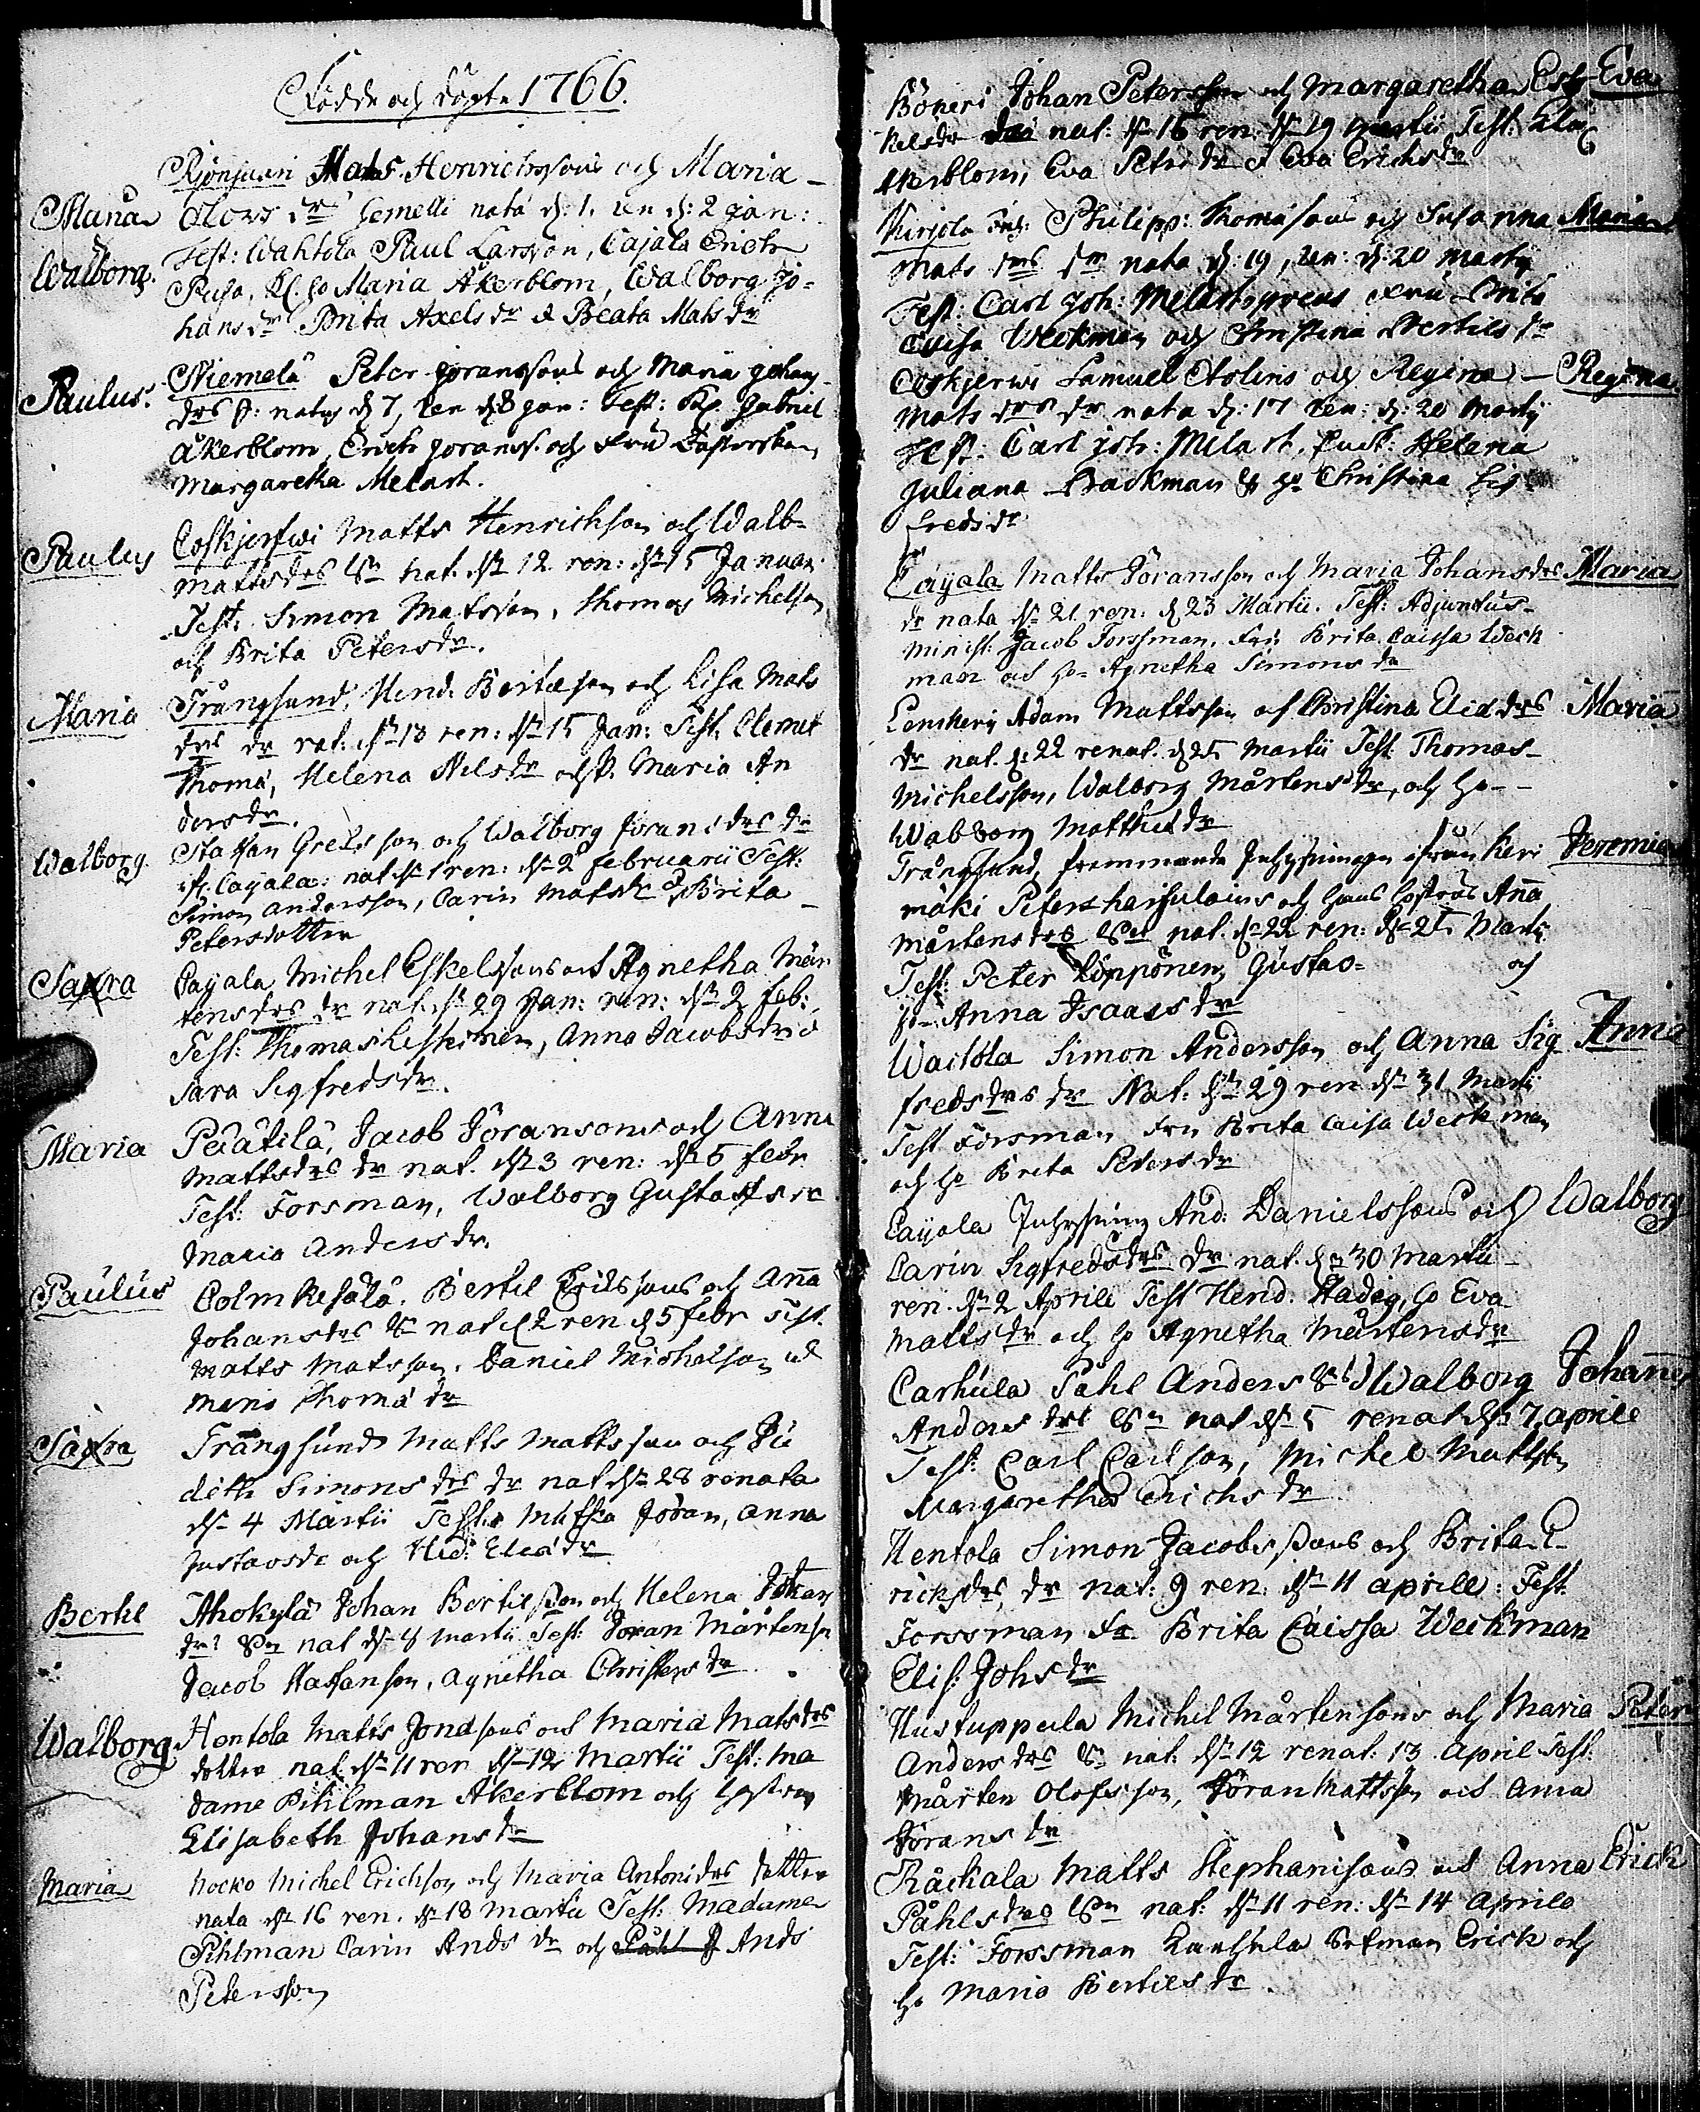 Födde och döpte 1766.
Maria
Walborg.
Mats Henrichssons och Maria
Olofs dr gemelli nata d: 1. ren d: 2 Jan:
Test: Wahtola Paul Larsson, Cajala Erich
Pusa, Kl. ho Maria Åkerblom, Walborg Jo-
hans dr Brita Axels dr & Beata Mats dr
Paulus.
Niemelä Peter Göranssons och Maria Johans
drs P: natus d 7, ren d 8 Jan: Test: Kp. Gabriel
Åkerblom, Erich Göranss. och Fru Pastorskan
Margaretha Melart.
Paulus
Coskjerfwi Matts Henrichson och Walb-
Mattsdrs Sn nat. dn 12 ren: dn 15 Januar:
Test: Simon Matsson, Thomas Michelson,
och Brita Petersdr.
Maria
Trångsund, Hend. Bertilson och Lisa Mats
drs dr nat: dn 13 ren: dn 15 Jan: Test. Clemet
Thomæ, Helena Nilsdr och P. Maria An
dersdr.
Walborg
Staffan Grelsson och Walborg Jörans drs dr
fr. Cajala: nat dn 1 ren: dn 2 Februarii Test:
Simon Andersson, Carin Mats dr & Brita
Petersdotter
Sara
Cajala Michel Eskelssons och Agnetha Mår
tens drs dr nat. dn 29 Jan: ren: dn 2 Feb:
Test: Thomas Leskinen, Anna Jacobs dr &
Sara Sigfredsdr.
Maria
Peätilä, Jacob Jöransons och Anna
Mattsdrs dr nat. dn 3 ren: dn 5 Febr
Test: Forsman, Walborg Gustafs dr
Maria Andersdr.
Paulus
Colmikesälä. Bertil Erikssons och Anna
Johansdrs Sn nat d 2 ren d 5 Febr Test.
Matts Matsson. Daniel Michelson och
Maria Thomæ dr
Sara
Trångsund Matts Mattsson och Ju
dith Simons drs dr nat dn 28 renata
dn 4 Martii Test: Matts Jöran, Anna
Gustavsdr och Hed: Eliædr
Bertil
Ahokylä Johan Bertilsson och Helena Johans
drs Sn nat dn 8 Martii Test: Jöran Mårtenson
Jacob Staffanson, Agnetha Christers dr
Walborg
Hentola Matts Jondsons och Maria Mats drs
dotter nat. dn 11 ren dn 12 Martii Test: Ma
dame Pihlman Åkerblom och hustrun
Elisabeth Johans dr
Maria
Nocko Michel Erichson och Maria Antoni drs dotter
nata dn 16 ren. dn 18 Martii Test: Madame
Pihlman Carin Ands dr och Påhl Ands
Petersson
Böneri Johan Petersson och Margaretha Esk- Eva
helsdr nat: dn 16 ren: dn 19 Martii Test: Kl
Åkerblom, Eva Peters dr & Eva Erichs dr
Kirjola Philipp: Thomæsons och Susanna Maria
Mats drs dr nata d: 19, ren: d: 20 Martii
Test: Carl Joh: Melartopoeus Fru Brita
Caisa Weckman och Christina Bertils dr
Coskjerwi Samuel Stolens och Regina Regina
Mats drs dr nata d: 17 ren: d: 20 Martii
Test. Carl Joh: Melart, Helena
Juliana Brackman & ho Christina Sig-
freds dr
Cajala Matts Göransson och Maria Johansdrs Maria
dr nata dn 21 ren: d 23 Martii. Test: Adjunctus
minist: Jacob Forssman, Fru Brita Caissa Weck
man och ho Agnetha Simons dr
Adam Mattsson och Christina Eliædrs Maria
dr nat. d: 22 renat. d 25 Martii Test Thomas
Michelsson, Walborg Mårtensdr, och ho
Walborg Matthiædr
Trångsund, främmande Inhysningen ifrån Keri Jeremias
mäki Peter och hans hustrus Anna
Mårtensdrs Sn nat. dn 22 ren: dn 25 Martii
Test: Peter Löppönen Gustav och
ho Anna Isaacs dr
Wacitola Simon Andersson och Anna Sig Anna
fredsdrs dr Nat: dn 29 ren dn 31 Martii
Test Forsman Fru Brita Caisa Weckman
och ho Brita Peders dr
Cajala Inhysning And: Danielssons och Walborg
Carin Sigfredsdrs dr nat. dn 30 Martii
ren. dn 2 Aprili Test Hend. Stadig, ho Eva
Mattsdr och ho Agnetha Mårtensdr
Carhula Påhl Anders Sn Walborg Johannes
Anders drs Sn nat dn 5 renat dn 7 Aprile
Test: Carl Carlson, Michel Mattson
Margaretha Erichs dr
Hentola Simon Jacobssons och Brita E-
ricksdrs dr nat: 9 ren: dn 11 Aprile: Test:
Forssman Fr. Brita Caissa Weckman
Elis: Johs dr
Michel Mårtensons och Maria Peter
Andersdrs Sn nat: dn 12 renat: 13 April Test:
Mårten Olofsson, Jöran Mattson och Anna
Jörans dr
Räckala Matts Stephanisons och Anna Erick
Påhlsdrs Sn nat: dn 11 ren: dn 14 Aprile
Test: Forssman Karhula Erick och
ho Maria Bertils dr